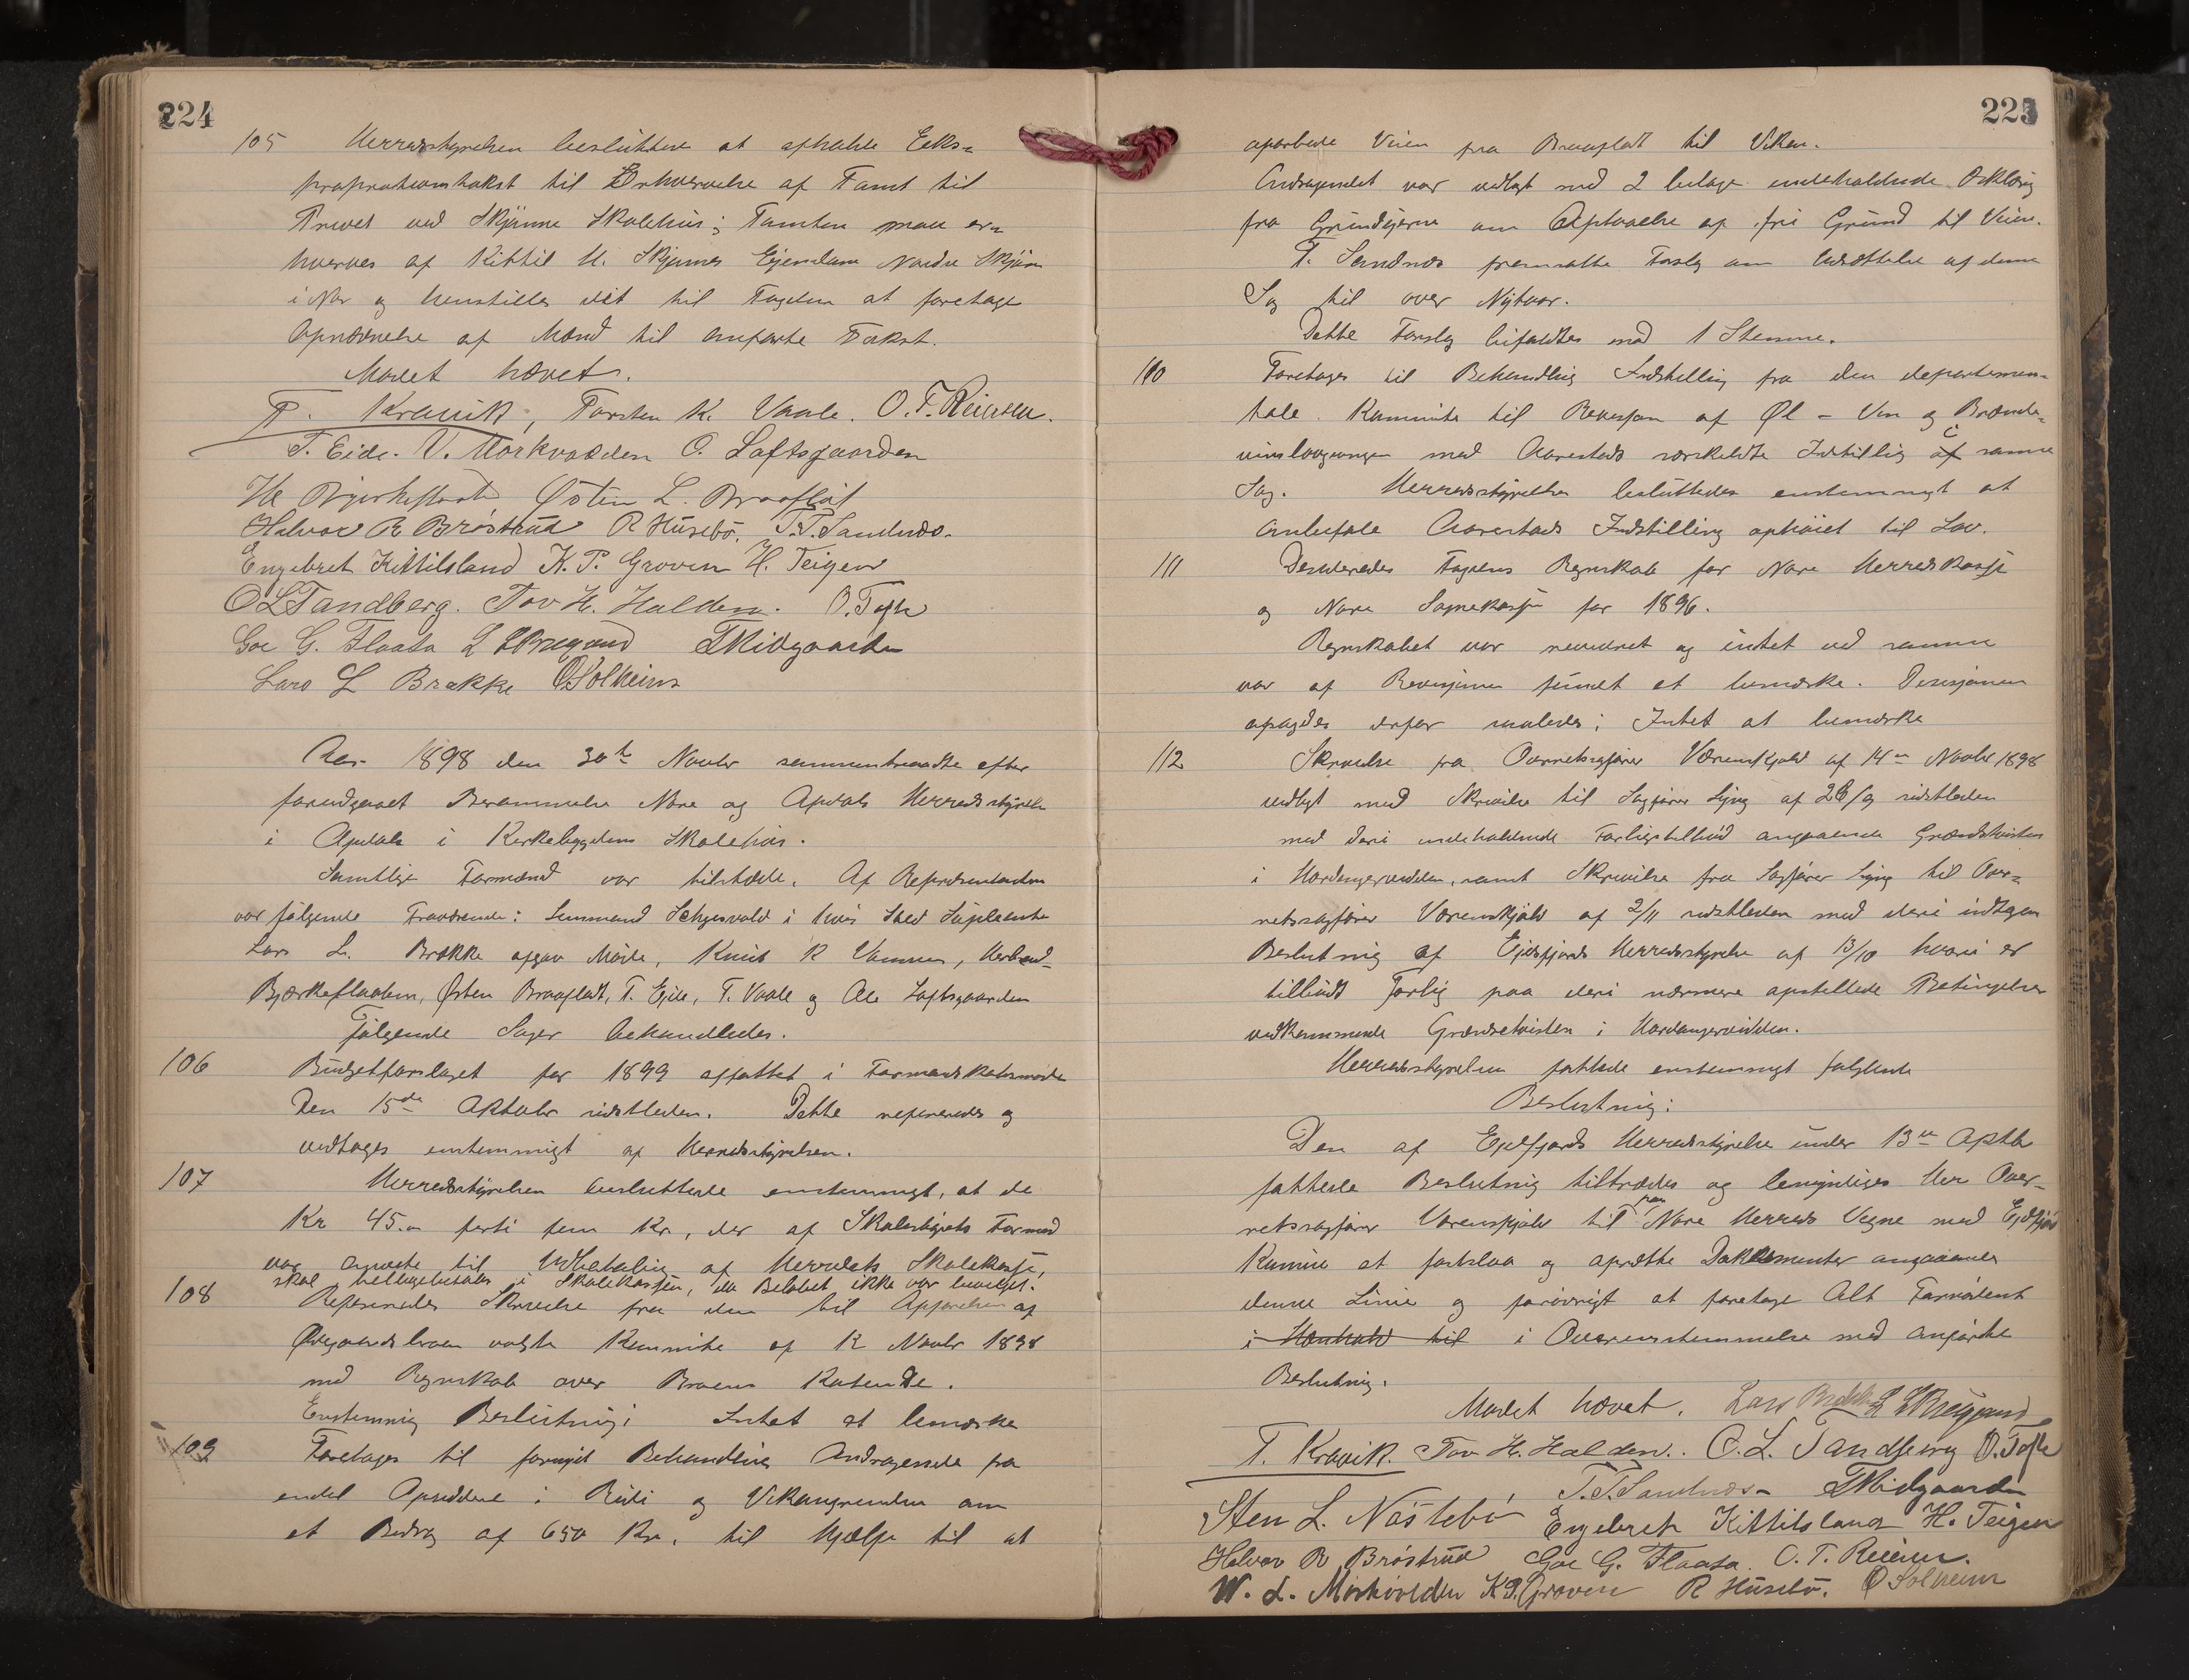 224
105 Herredsstyrelsen besluttede at afholde Eeks=
propriationstakst til Erhvervelse af Tomt til
Privet ved Skjønne Skolehus; Tomten maa er=
hverves af Kittil H. Skjønnes Ejendom Nordre Skjøn
i Nor og henstilles det til Fogden at foretage
Opnævnelse af Mænd til anførte Takst.
Mødet hævet.
T. Kravik, Torsten K. Vaale. O. T. Reiersen.
T. Eide. V. Morkvolden O. Loftsgaarden
H Bjerkeflaat Østen L. Braaflat
Halvor R Brøstrud R Husebø. T. T. Sandnæs.
Engebret Kittilsland K. P. Groven H. Teigen
O L Tandberg. Tov H. Halden. O. Tofte
Goe G. Flaata L L Bregaard T Midgaarden
Lars L Brække O Solheim
Aar 1898 den 30te Novbr sammentraadte efter
forudgaaet Berammelse Nore og Opdals Herredsstyrelse
i Opdal i Kirkebygdens Skolehus.
Samtlige Formænd var tilstæde. Af Repræsentanten
var følgende Fraværende: Lensmand Schjesvold i hvis Sted Suppleanten
Lars L. Brække afgav Møde, Knut K Vannen,
Bjerkeflaaten, Østen Braafladt, T. Ejde, T. Vaale og Ole Loftsgaarden
Følgende Sager behandledes.
106 Budgetforslaget for 1899 affattet i Formandskabsmøde
den 15de Oktobr sidstleden. Dette refereredes og
vedtages enstemmigt af Herredsstyrelsen.
107 Herredsstyrelsen besluttede enstemmigt, at de
Kr 45.00 forti fem Kr, der af Skolestyrets Formand
var anviste til Udbetaling af Herredets Skolekasse,
skal tilbagebetales i Skolekassen, da Beløbet ikke var bevilget.
108 Refereredes Skrivelse fra den til Opførelsen af
Øvegaardsbroen valgte Kommite af 12 Novbr 1898
med Regnskab over Broens Kostende.
Enstemmig Beslutning: Intet at bemærke
109 Foretages til fornyet Behandling Andragende fra
endel Opsiddere i Ruti og Vikangrenden om
et Bidrag af 650 Kr. til Hjælp til at
225
oparbede Veien fra Braafladt til Viken.
Andragendet var vedlagt med 2 bilage indeholdende Erklæring
fra Grundejerne om Afstaaelse af fri Grund til Veien.
T. Sandnæs fremsatte Forslag om Udsættelse af denne
Sag til over Nytaar.
Dette Forslag bifaldtes mod 1 Stemme.
110 Foretages til Behandling Indstilling fra den departemen=
tale Kommite til Revisjon af Øl - Vin og Brænde=
vinslovgivningen med Aarestads særskildte Indstilling i samme
Sag. Herredsstyrelsen besluttedes enstemmigt at
anbefale Aarestads Indstilling ophøiet til Lov.
111 Desideredes Fogdens Regnskab for Nore Herredskasse
og Nore Sognekasse for 1896.
Regnskabet var revideret og intet ved samme
var af Revisjonen fundet at bemærke. Desisjonen
afsagdes derfor saaledes: Intet at bemærke
112 Skrivelse fra Overretssagfører Værenskjold af 14de Novbr 1898
vedlagt med Skrivelse til Sagfører Lyng af 26/9 sidstleden
med deri indeholdende Forligstilbud angaaende Grændsetvisten
i Hardangervidden, samt Skrivelse fra Sagfører Lyng til Over=
retssagfører Værenskjold af 2/11 sidstleden med deri indtagen
Beslutning af Ejdsfjords Herredsstyrelse af 13/10 hvori er
tilbudt Forlig paa deri nærmere opstillede Betingelser
vedkommende Grændsetvisten i Hardangervidden.
Herredsstyrelsen fattede enstemmigt følgende
Beslutning:
Den af Ejdfjords Herredsstyrelse under 13de Oktbr
fattede Beslutning tiltrædes og bemyndiges Herr Over-
retssagfører Værenskjold til paa Nore Herreds Vegne med Ejdfjord
Komune at fastslaa og oprette Dokumenter angaaende
denne Linie og forøvrigt at foretage Alt Fornødent
i Henhold til i Overensstemmelse med anførte
Beslutning.
Mødet hævet. Lars Brække L L Bregaard
T. Kravik. Tov H. Halden. O. L. Tandberg O. Tofte
T. T. Sandnæs T Midgaarden
Sten L. Nøstebø Engebret Kittilsland H. Teigen
Halvor R Brøstrud Goe G. Flaata. O. T. Reiersen.
W. L. Morkvolden K. P. Groven R Husebø. O Solheim